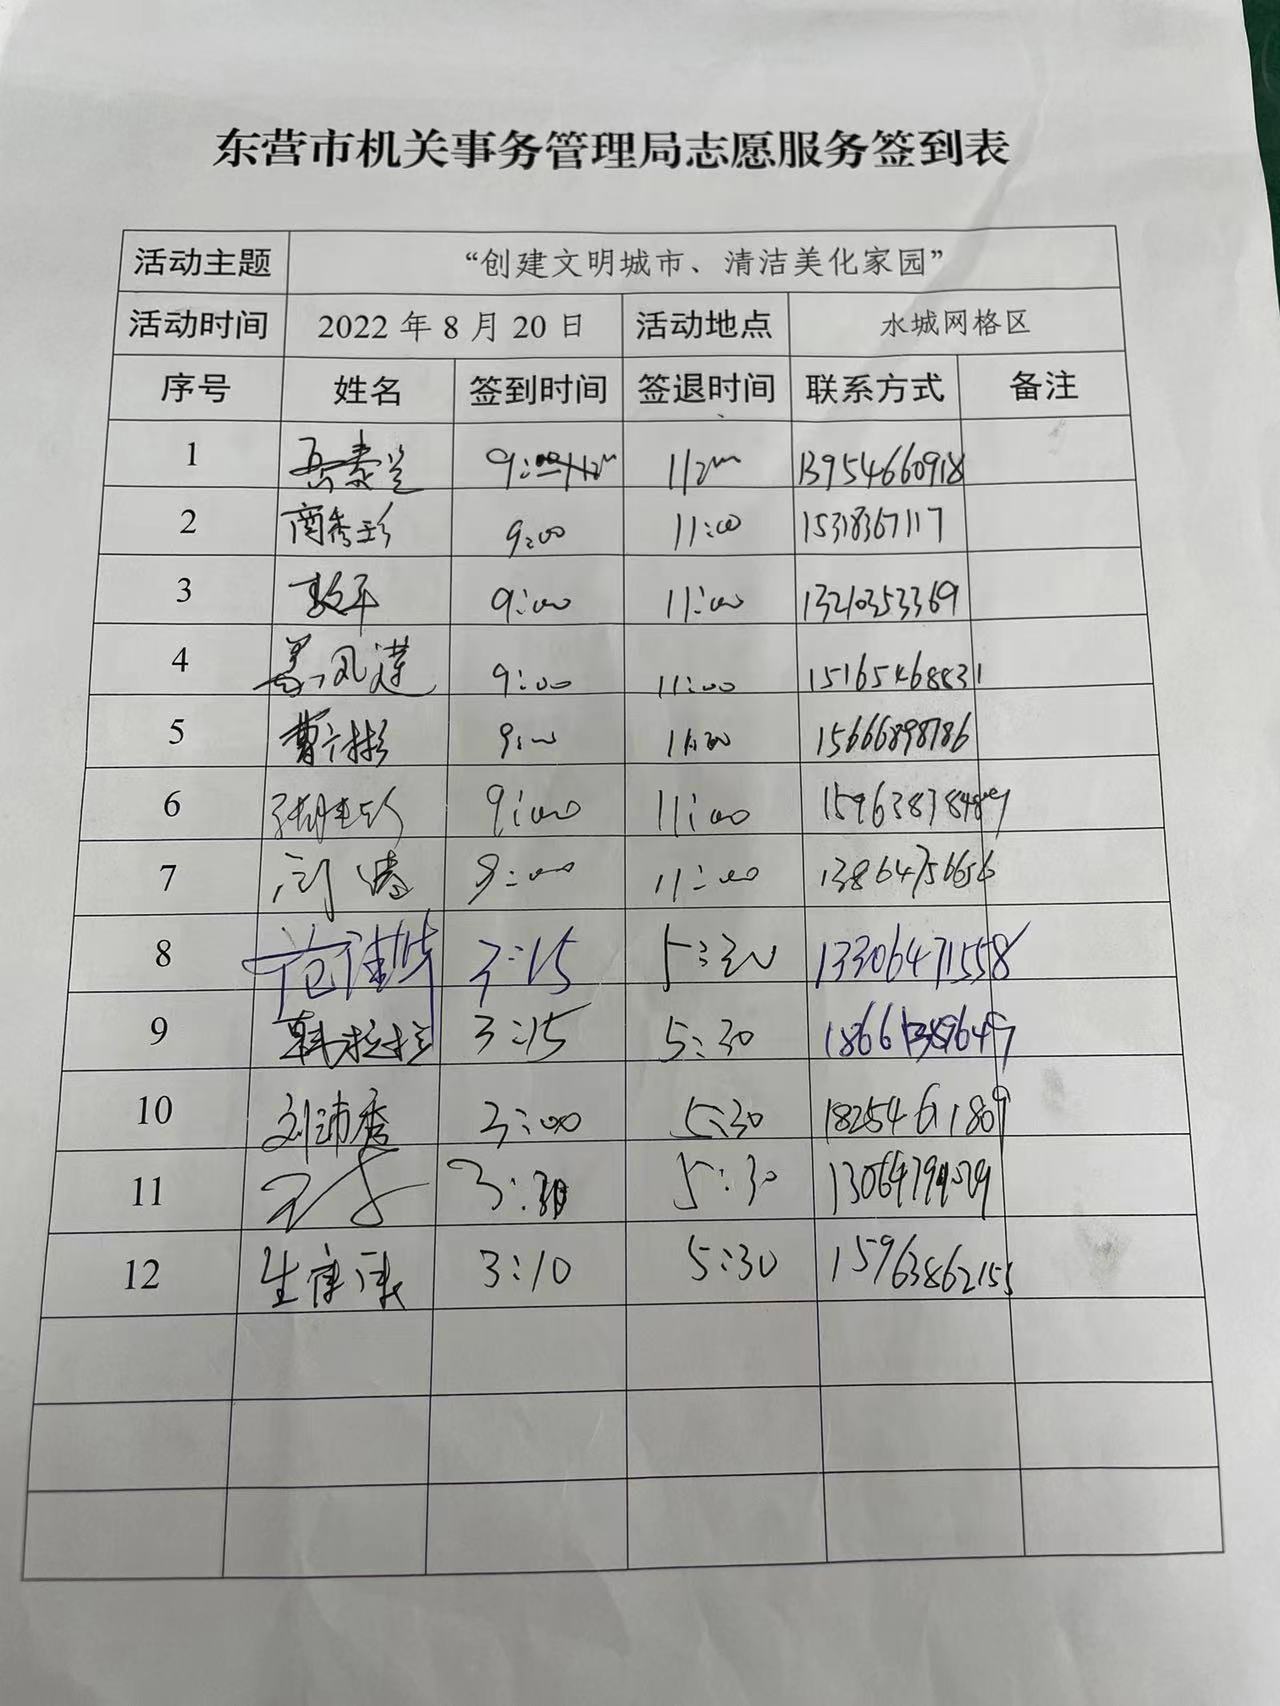 东营市机关事务管理局志愿服务签到表
活动主题 “创建文明城市、清洁美化家园”
活动时间 2022年8月20日 活动地点 水城网格区
序号 姓名 签到时间 签退时间 联系方式 备注
1 9: 11 13954660918
2 商秀珍 9:00 11:00 15318367117
3 9:00 11:00 13210353369
4 9:00 11:00 15165468831
5 9:00 11:00 15666898786
6 9:00 11:00
7 9:00 11:00 13864756656
8 3:15 5:30 13306471558
9 韩拉拉 3:15 5:30
10 刘沛秀 3:00 5:30 18254611809
11 3: 5:30
12 3:10 5:30 15963862155